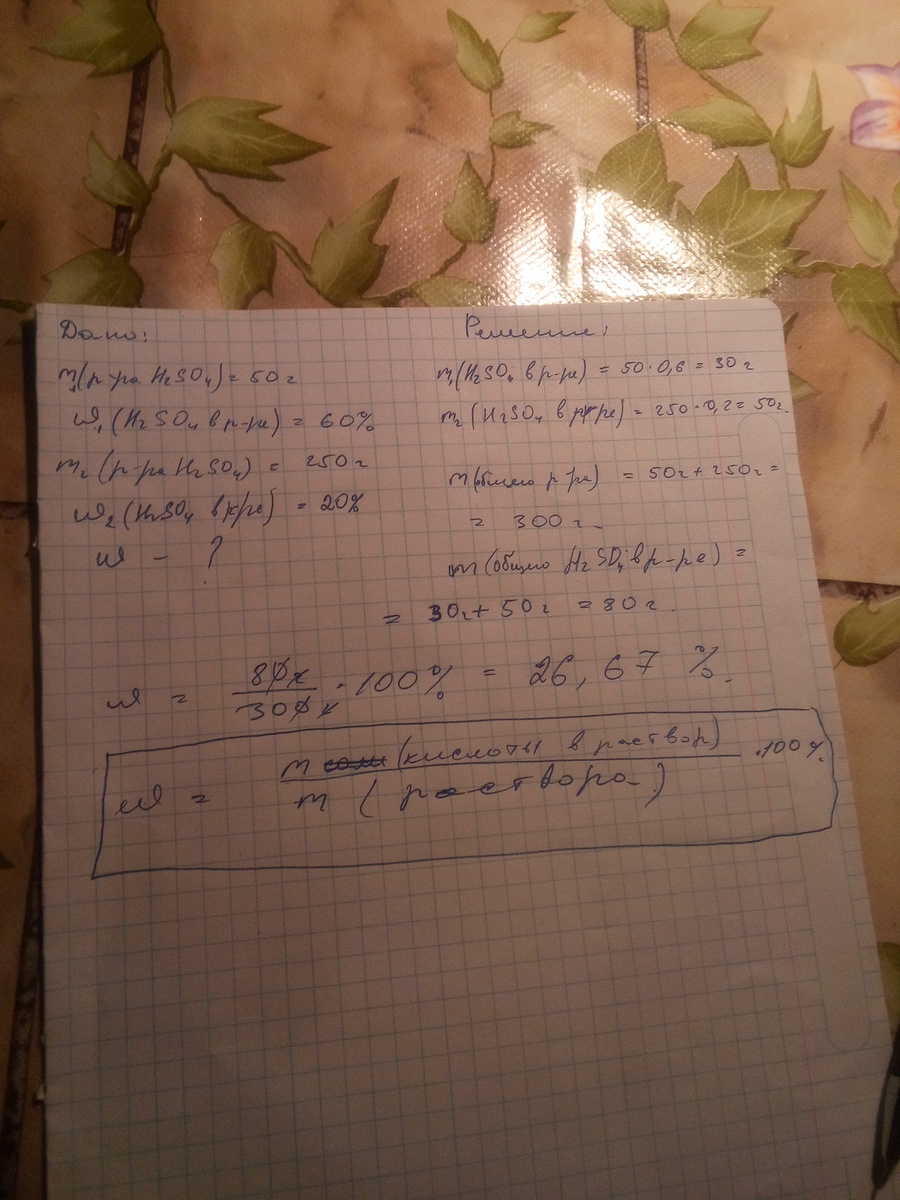 Дано:
m₁(р-ра H₂SO₄) = 50 г
ω₁ (H₂SO₄ в р-ре) = 60%
m₂ (р-ра H₂SO₄) = 250 г
ω₂ (H₂SO₄ в р-ре) = 20%
ω – ?
Решение:
m₁(H₂SO₄ в р-ре) = 50·0,6 = 30 г
m₂ (H₂SO₄ в р-ре) = 250·0,2 = 50г.
m(общего р-ра) = 50г + 250г =
= 300 г.
m (общего H₂SO₄ в р-ре) =
= 30г + 50г = 80 г.
ω = 80г / 300г · 100% = 26,67 %.
ω = m соли (кислоты в раствор) / m (раствора) · 100%